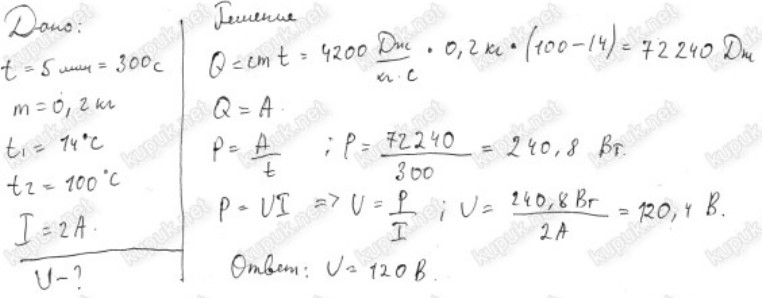 Дано:
t = 5 мин = 300 с
m = 0,2 кг
t₁ = 14°C
t₂ = 100°C
I = 2А.
U - ?
Решение
Q = cmt = 4200 Дж/кг·с · 0,2 кг · (100-14) = 72240 Дж
Q = A.
P = A/t ; P = 72240/300 = 240,8 Вт.
P = UI => U = P/I ; U = 240,8 Вт/2А = 120,4 В.
Ответ: U = 120 В.
kupuk.net